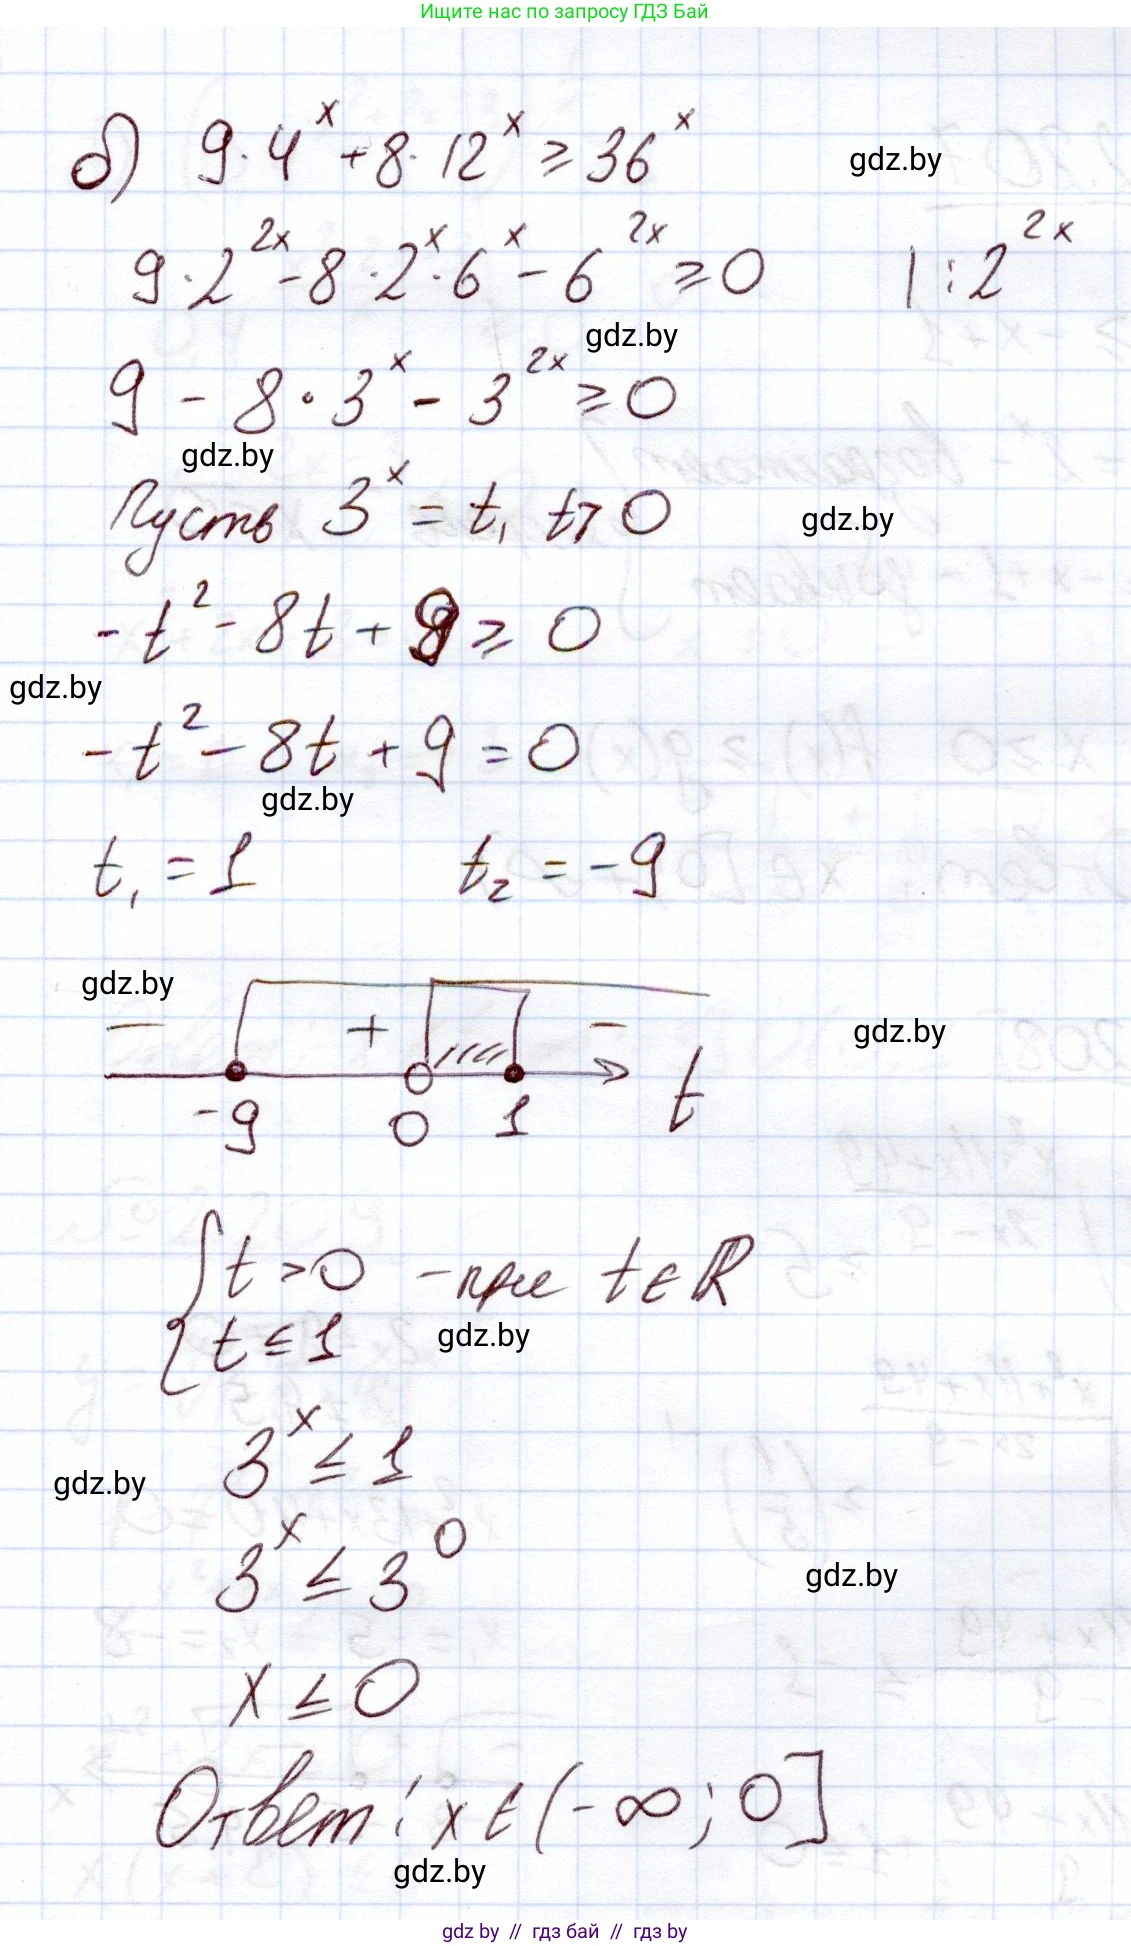 Ищите нас по запросу ГДЗ Бай
б) 9·4^x + 8·12^x ≥ 36^x
gdz.by
9·2^2x - 8·2^x·6^x - 6^2x ≥ 0 | : 2^2x
gdz.by
9 - 8·3^x - 3^2x ≥ 0
gdz.by
Пусть 3^x = t, t > 0
gdz.by
-t² - 8t + 9 ≥ 0
gdz.by
-t² - 8t + 9 = 0
gdz.by
t₁ = 1 t₂ = -9
gdz.by
− + −
gdz.by
-9 0 1 t
{ t > 0 - при t ∈ R
t ≤ 1
gdz.by
3^x ≤ 1
gdz.by
3^x ≤ 3^0
gdz.by
x ≤ 0
Ответ: x ∈ (-∞; 0]
gdz.by
gdz by // гдз бай // гдз by